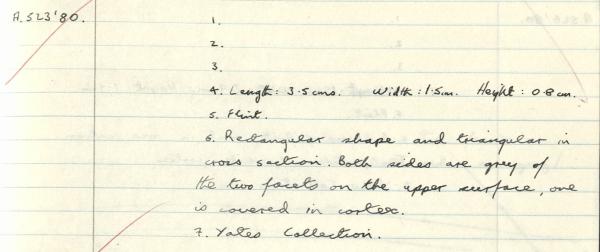 A.523'80.
1.
2.
3.
4. Length: 3.5cms. Width: 1.5cm. Height: 0.8cm.
5. Flint.
6. Rectangular shape and triangular in
cross section. Both sides are grey of
the two facets on the upper surface, one
is covered in cortex.
7. Yates Collection.